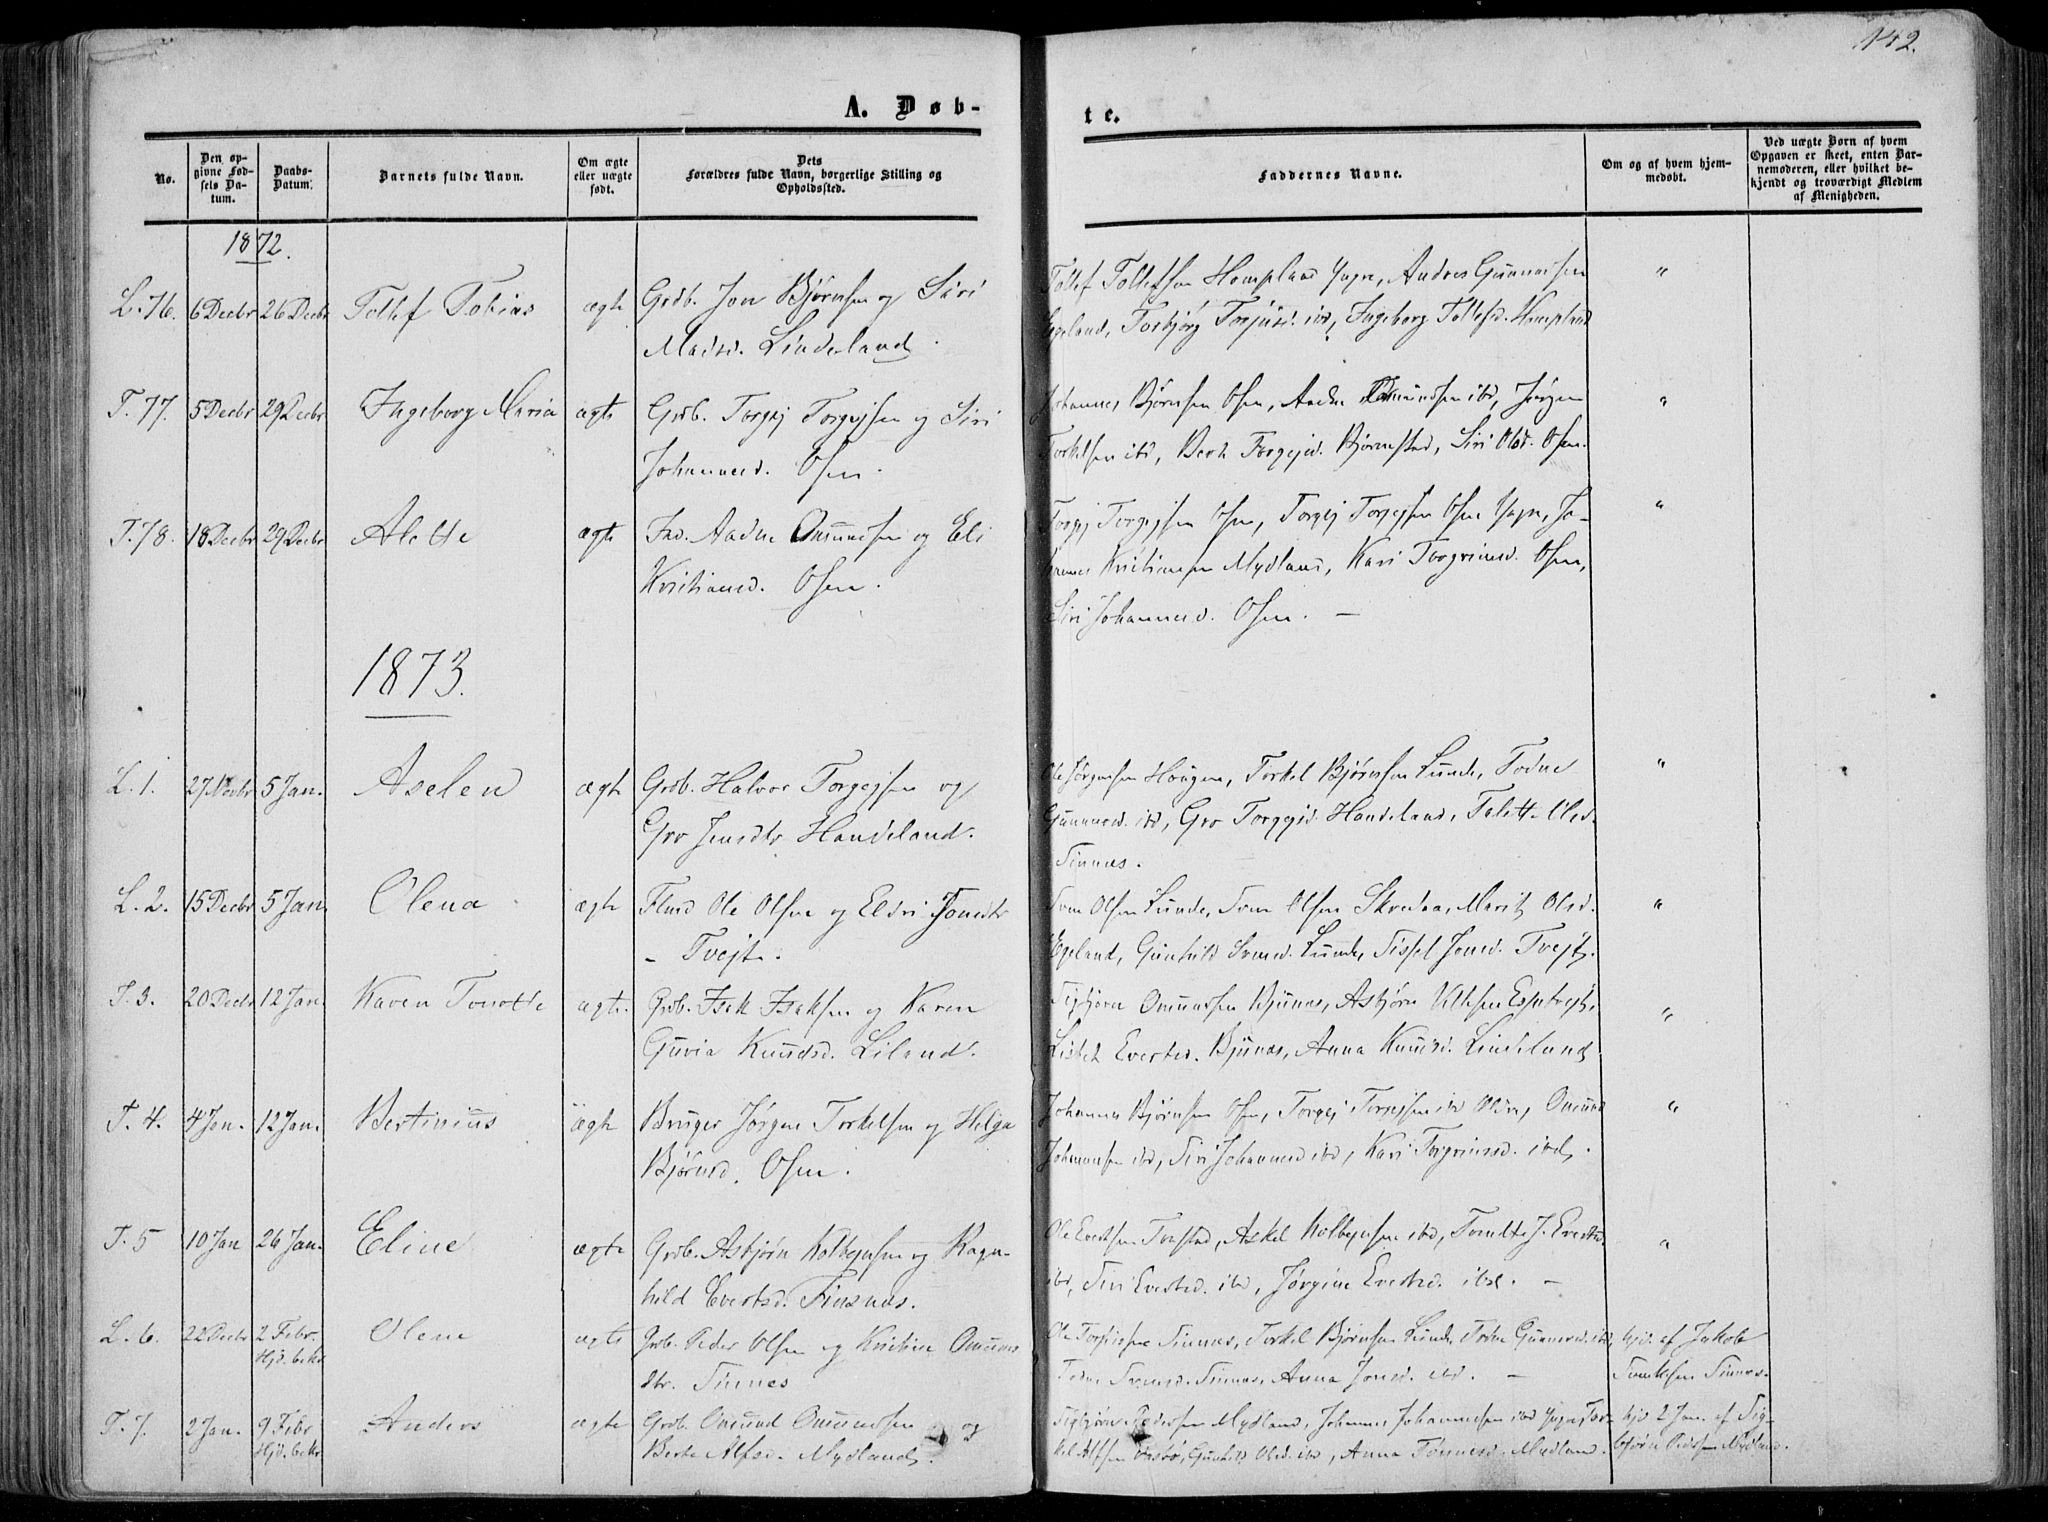 142.
A. Døb-
te.
No.
Den op-
givne Fød-
sels Da-
tum.
Daabs-
Datum.
Barnets fulde Navn.
Om ægte
eller uægte
født.
Dets
Forældres fulde Navn, borgerlige Stilling og
Opholdssted.
Faddernes Navne.
Om og af hvem hjem-
medøbt.
Ved uægte Børn af hvem
Opgaven er skeet, enten Bar-
nemoderen, eller hvilket be-
kjendt og troværdigt Medlem
af Menigheden.
1872.
L. 76. 6 Decbr 26 Decbr Tollef Tobias ægte Grdb. Jon Bjørnsen og Siri
Madsd. Lindeland.
Tollef Tollefsen Hompland Yngre, Andres Gunnarsen
Egeland, Torbjørg Torjusd. ibd, Ingeborg Tollefsd. Hompland
"
T. 77. 5 Decbr 29 Decbr Ingeborg Maria ægte Grdb. Torgej Torgejsen og Siri
Johannesd. Osen.
Johannes Bjørnsen Osen, Aadne Omundsen ibd, Jørgen
Torkelsen ibd, Berte Torgejsd. Bjørnestad, Siri Olsd. Osen.
"
T. 78. 18 Decbr 29 Decbr Alette ægte Ind. Aadne Omundsen og Eli
Kristiansd. Osen.
Torgej Torgejsen Osen, Torgej Torgejsen Osen Yngre, Jo-
hannes Kristiansen Mydland, Kari Torgrimsd. Osen,
Siri Johannesd. Osen. —
"
1873.
L. 1. 27 Novbr 5 Jan. Aselen ægte Grdb. Halvor Torgejsen og
Gro Jensdtr Handeland.
Ole Jørgensen Haugen, Torkel Bjørnsen Lunde, Todne
Gunnarsd. ibd, Gro Torgejsd. Handeland, Talette Olsd.
Sinnes.
"
L. 2. 15 Decbr 5 Jan. Olena ægte Ole Olsen og Eldri Jonsdtr
- Tvejt.
Sven Olsen Lunde, Sven Olsen Skredaa, Marit Olsd.
Egeland, Gunhild Svensd. Lunde, Sissel Jonsd. Tvejt.
"
T. 3. 20 Decbr 12 Jan. Karen Tonette ægte. Grdb. Isak Isaksen og Karen
Guria Knudsd. Liland.
Sigbjørn Omundsen Bjunes, Asbjørn Espetvejt,
Lisbet Evertsd. Bjunes, Anna Knudsd. Lindeland
"
T. 4. 4 Jan. 12 Jan. Bertinius ægte Bruger Jørgen Torkelsen og Helga
Bjørnsd. Osen.
Johannes Bjørnsen Osen, Torgej Torgejsen ibd Ældre, Omund
Johannsen ibd, Siri Johannesd ibd, Kari Torgrimsd. ibd.
"
T. 5 10 Jan 26 Jan. Eline ægte Grdb. Asbjørn Kolbejnsen og Ragn-
hild Evertsd. Finsnes.
Ole Evertsen Tonstad, Askel Kolbejnsen ibd, Evertsd.
ibd, Siri Evertsd. ibd, Jørgine Evertsd. ibd. —
"
L. 6. 22 Decbr 2 Febr. Olene ægte Grdb. Peder Olsen og Kristine Omunds
Hjd. bekr
dtr. Sinnes
Ole Sinnes, Torkel Bjørnsen Lunde, Todne Gunnarsd. ibd,
Todne Svensd. Sinnes, Anna Jonsd. ibd. —
hjd. af Jakob
Sinnes.
T. 7. 2 Jan. 9 Febr Anders ægte Grdb. Omund Omundsen og
Hjd. bekr
Berte Alfsd. Mydland.
Sigbjørn Pedersen Mydland, Johannes Johannessen ibd Yngre, Tor-
kel Alfsen, Gunhild Olsd. ibd, Anna Tønnesd. Mydland.
hjd 2 Jan. af Sig-
bjørn Pedersen Mydland.